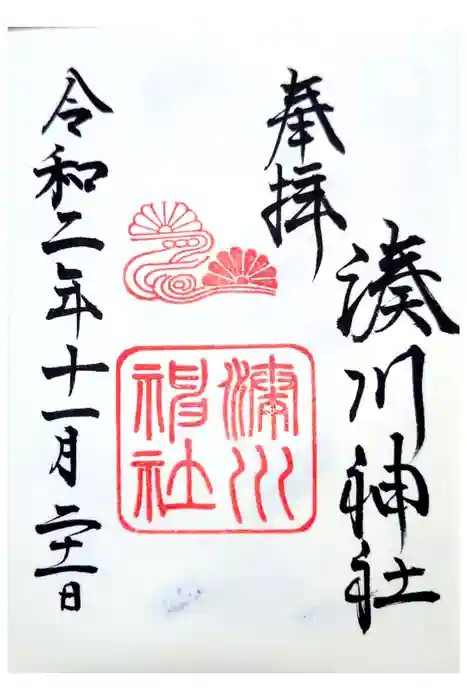 奉拝
湊川神社
湊川
神社
令和二年十一月二十二日